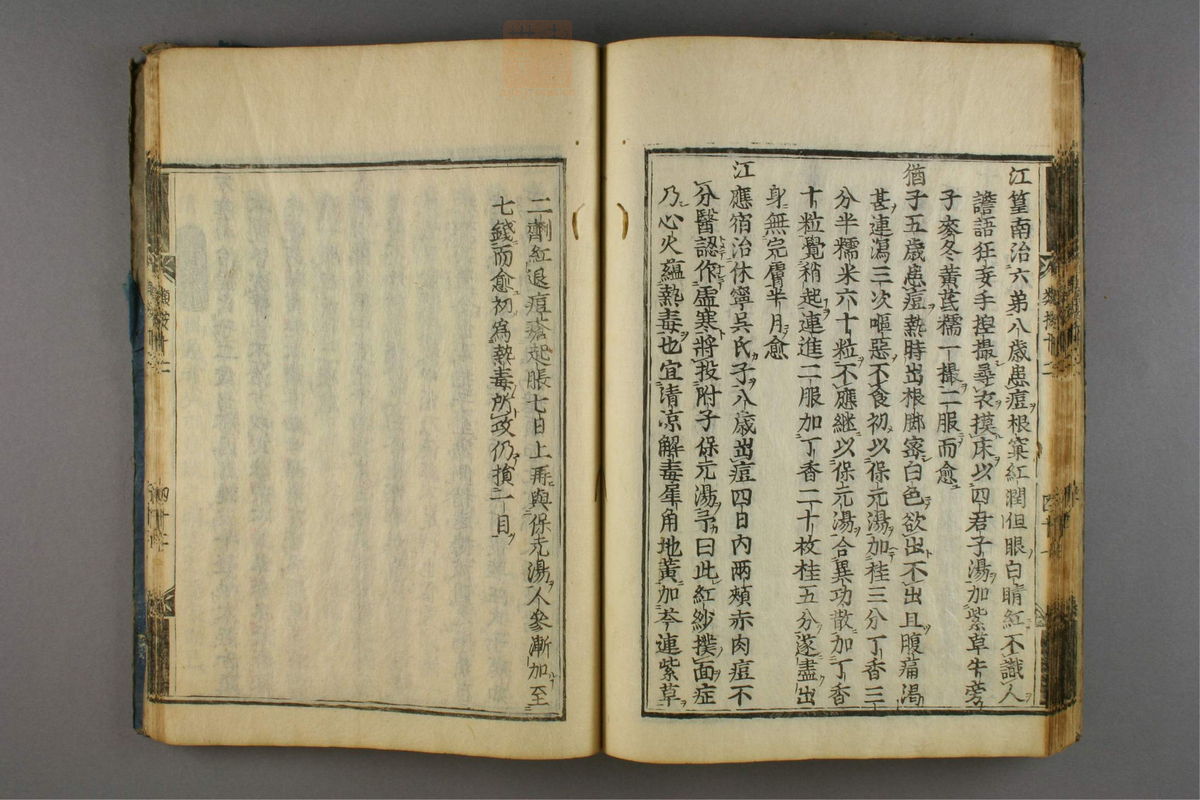 江篁南治六弟八歲患痘根窠紅潤但眼白睛紅不識人
譫語狂妄手揑撮尋衣摸床以四君子湯加紫草牛蒡
子麥冬黃芪糯一撮二服而愈
猶子五歲患痘熱時出根脚密白色欲出不出且腹痛渴
甚連瀉三次嘔惡不食初以保元湯加桂三分丁香三
分半糯米六十粒不應繼以保元湯合異功散加丁香
十粒覺稍起連進二服加丁香二十枚桂五分遂盡出
身無完膚半月愈
江應宿治休寧吳氏子八歲出痘四日內兩頰赤肉痘不
分醫認作虛寒將投附子保元湯予曰此紅紗撲面症
乃心火蘊熱毒也宜清凉解毒犀角地黃加芩連紫草
二劑紅退痘瘡起脹七日上再與保元湯人參漸加至
七錢而愈初爲熱毒所攻仍損一目